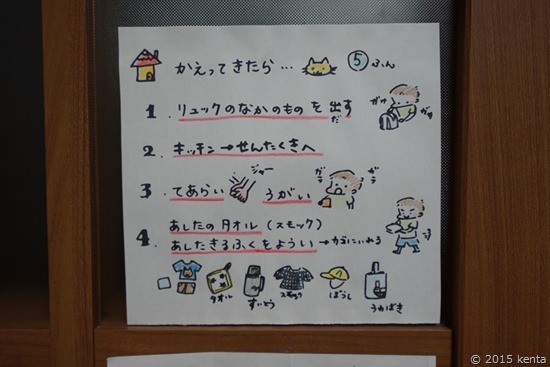 かえってきたら… ⑤ふん
1. リュックのなかのものを出す
だ
ガサ
ガサ
2. キッチン→せんたくきへ
3. てあらい ジャー うがい
ガラ
ガラ
あしたのタオル(スモック)
4. あしたきるふくをようい→カゴにいれる
タオル すいとう スモック ぼうし うわばき
© 2015 kenta